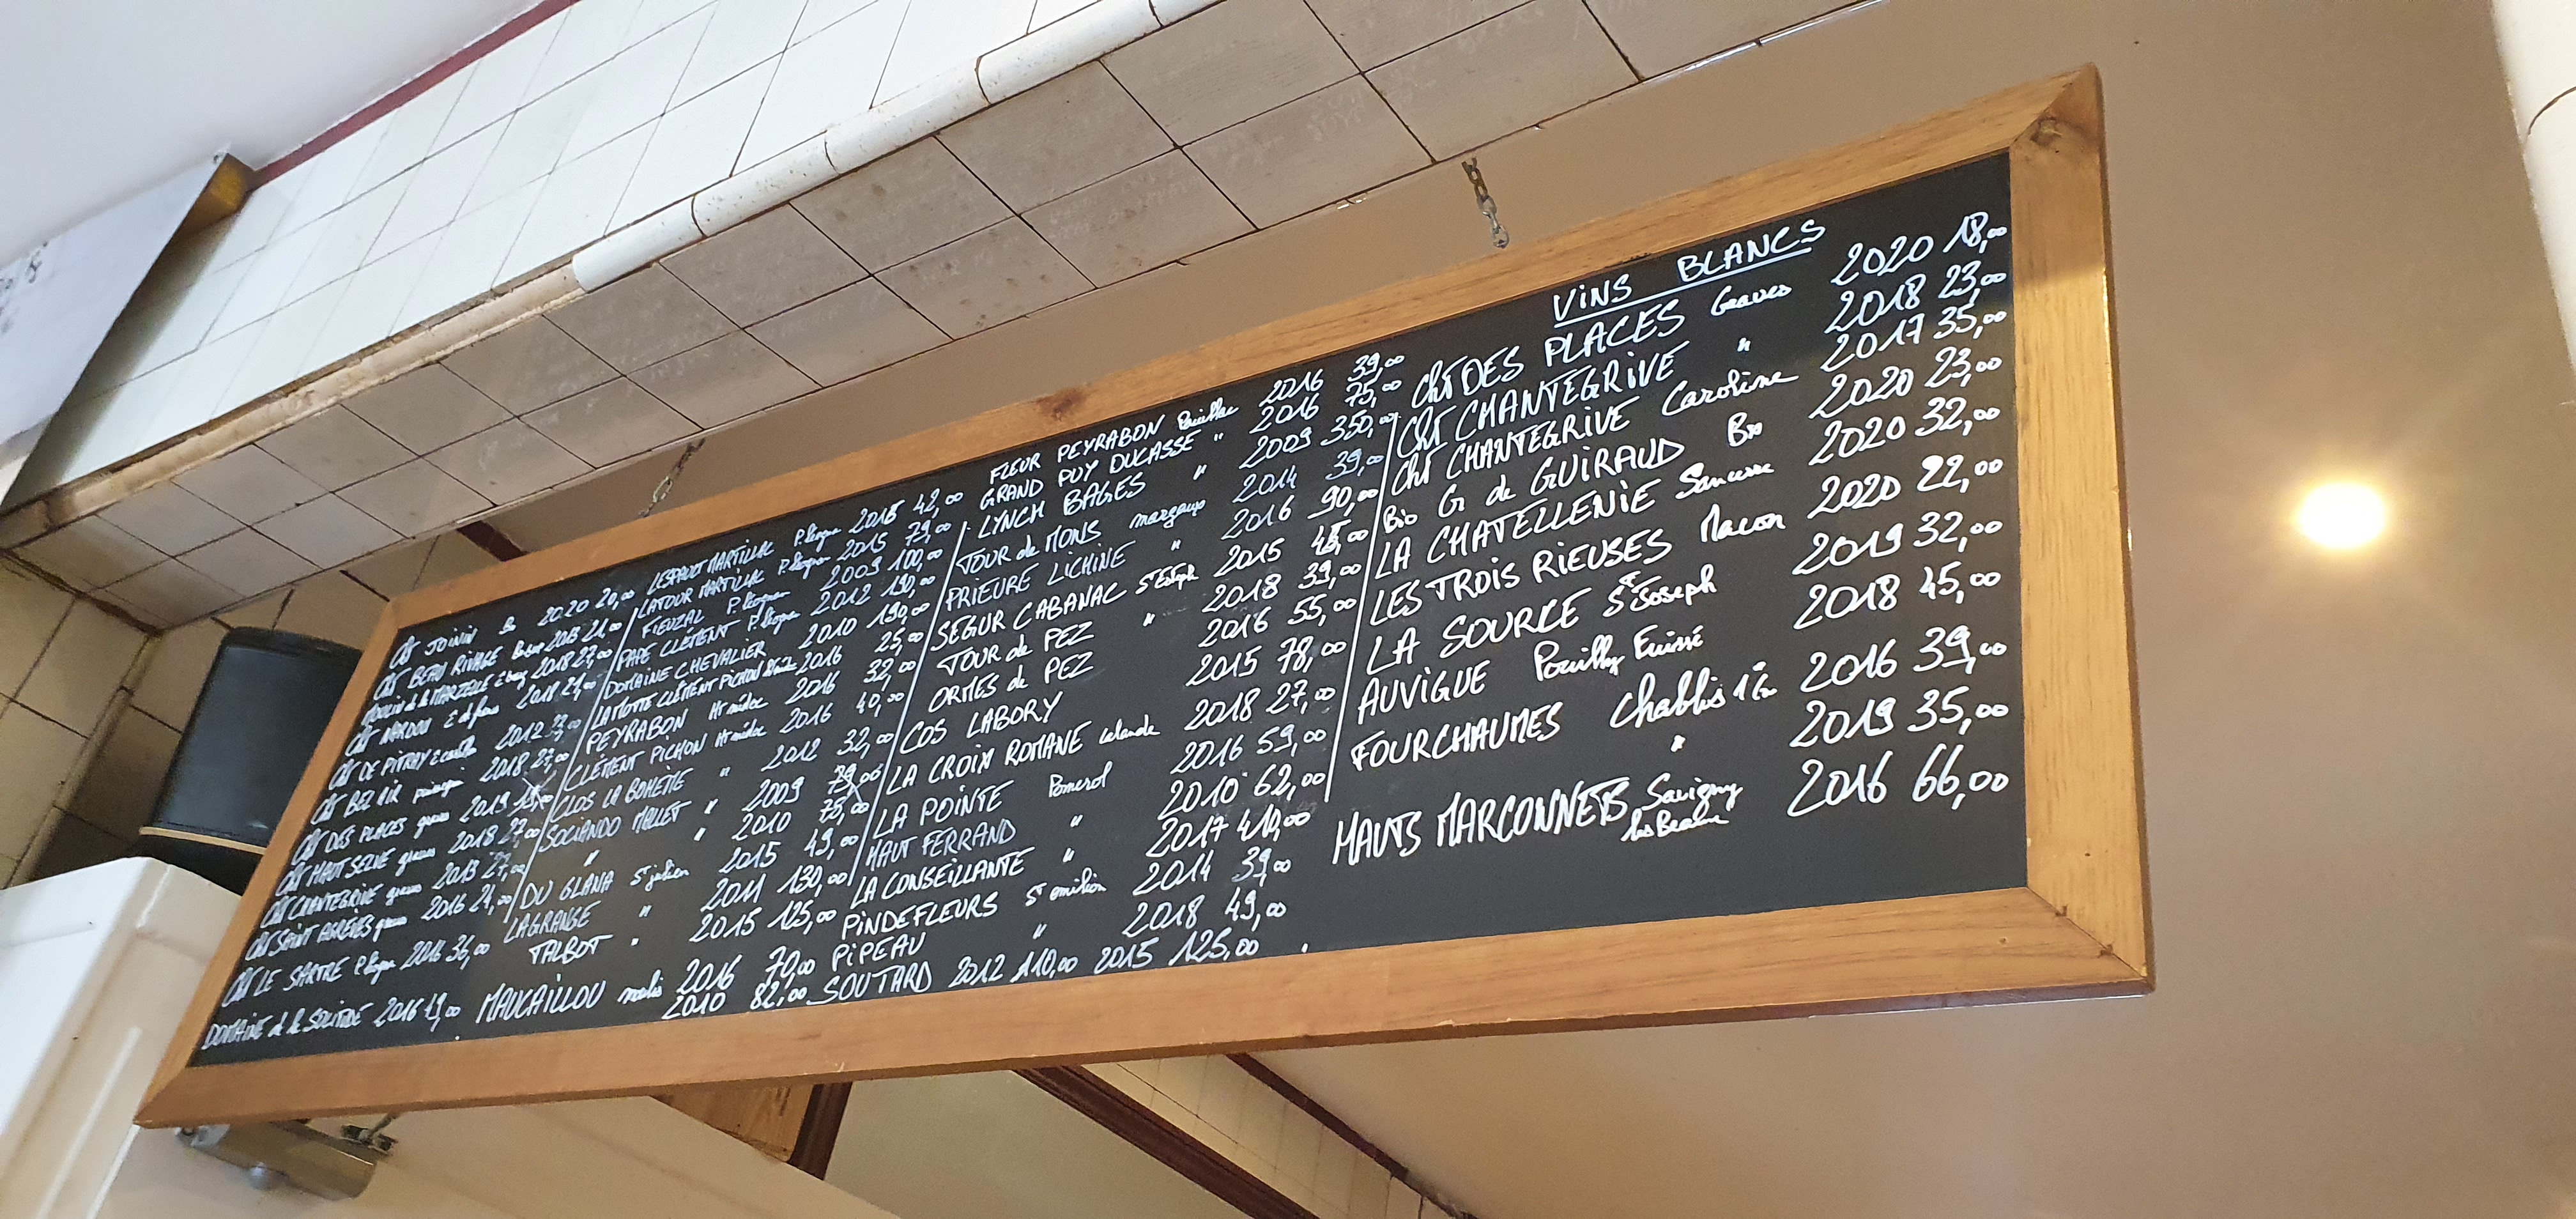 Cht JOININ Bx 2020 20,00
Cht BEAU RIVAGE 21,00
MOULIN de la MARZELLE 2018 27,00
Cht NARDOU 2018 24,00
Cht DE PITRAY 2012
Cht BEL AIR 2018 27,00
Cht DES PLACES graves 2019
Cht HAUT SELVE graves 2018 27,00
Cht CHANTEGRIVE graves 27,00
Cht SAINT AGREVES graves 2016 24,00
Cht LE SARTRE P. Léognan 2016 36,00
DOMAINE de la SOLITUDE 2016
LESPAULT MARTILLAC P. Léognan 2018 42,00
LATOUR MARTILLAC P. Léognan 2015 79,00
FIEUZAL P. Léognan 2009 100,00
PAPE CLÉMENT P. Léognan 2012 190,00
DOMAINE CHEVALIER 2010 190,00
LAMOTTE CLÉMENT PICHON 2016 25,00
PEYRABON Ht médoc 2016 32,00
CLÉMENT PICHON Ht médoc 2016 40,00
CLOS LA BOHÈME " 2012 32,00
SOCIANDO MALLET " 2009 79,00
" " 2010 75,00
DU GLANA St julien 2015 49,00
LAGRANGE " 2011 130,00
TALBOT " 2015 125,00
MAUCAILLOU moulis 2016 70,00
2010 82,00
FLEUR PEYRABON Pauillac 2016 39,00
GRAND PUY DUCASSE " 2016 75,00
LYNCH BAGES " 2009 350,00
TOUR de MONS margaux 2014 39,00
PRIEURE LICHINE " 2016 90,00
SEGUR CABANAC St Estèphe 2015 45,00
TOUR de PEZ " 2018 39,00
ORMES de PEZ 2016 55,00
COS LABORY 2015 78,00
LA CROIX ROMANE Lalande 2018 27,00
LA POINTE Pomerol 2016 59,00
HAUT FERRAND " 2010 62,00
LA CONSEILLANTE " 2017 410,00
PINDEFLEURS St emilion 2014 39,00
PIPEAU " 2018 49,00
SOUTARD 2012 110,00 2015 125,00
VINS BLANCS
Cht DES PLACES Graves 2020 18,00
Cht CHANTEGRIVE " 2018 23,00
Cht CHANTEGRIVE Caroline 2017 35,00
Bio G de GUIRAUD Bx 2020 23,00
LA CHATELLENIE Sancerre 2020 32,00
LES TROIS RIEUSES Macon 2020 22,00
LA SOURCE St Joseph 2019 32,00
AUVIGUE Pouilly Fuissé 2018 45,00
FOURCHAUMES Chablis 1er 2016 39,00
" 2019 35,00
HAUTS MARCONNETS Savigny 2016 66,00
les Beaune